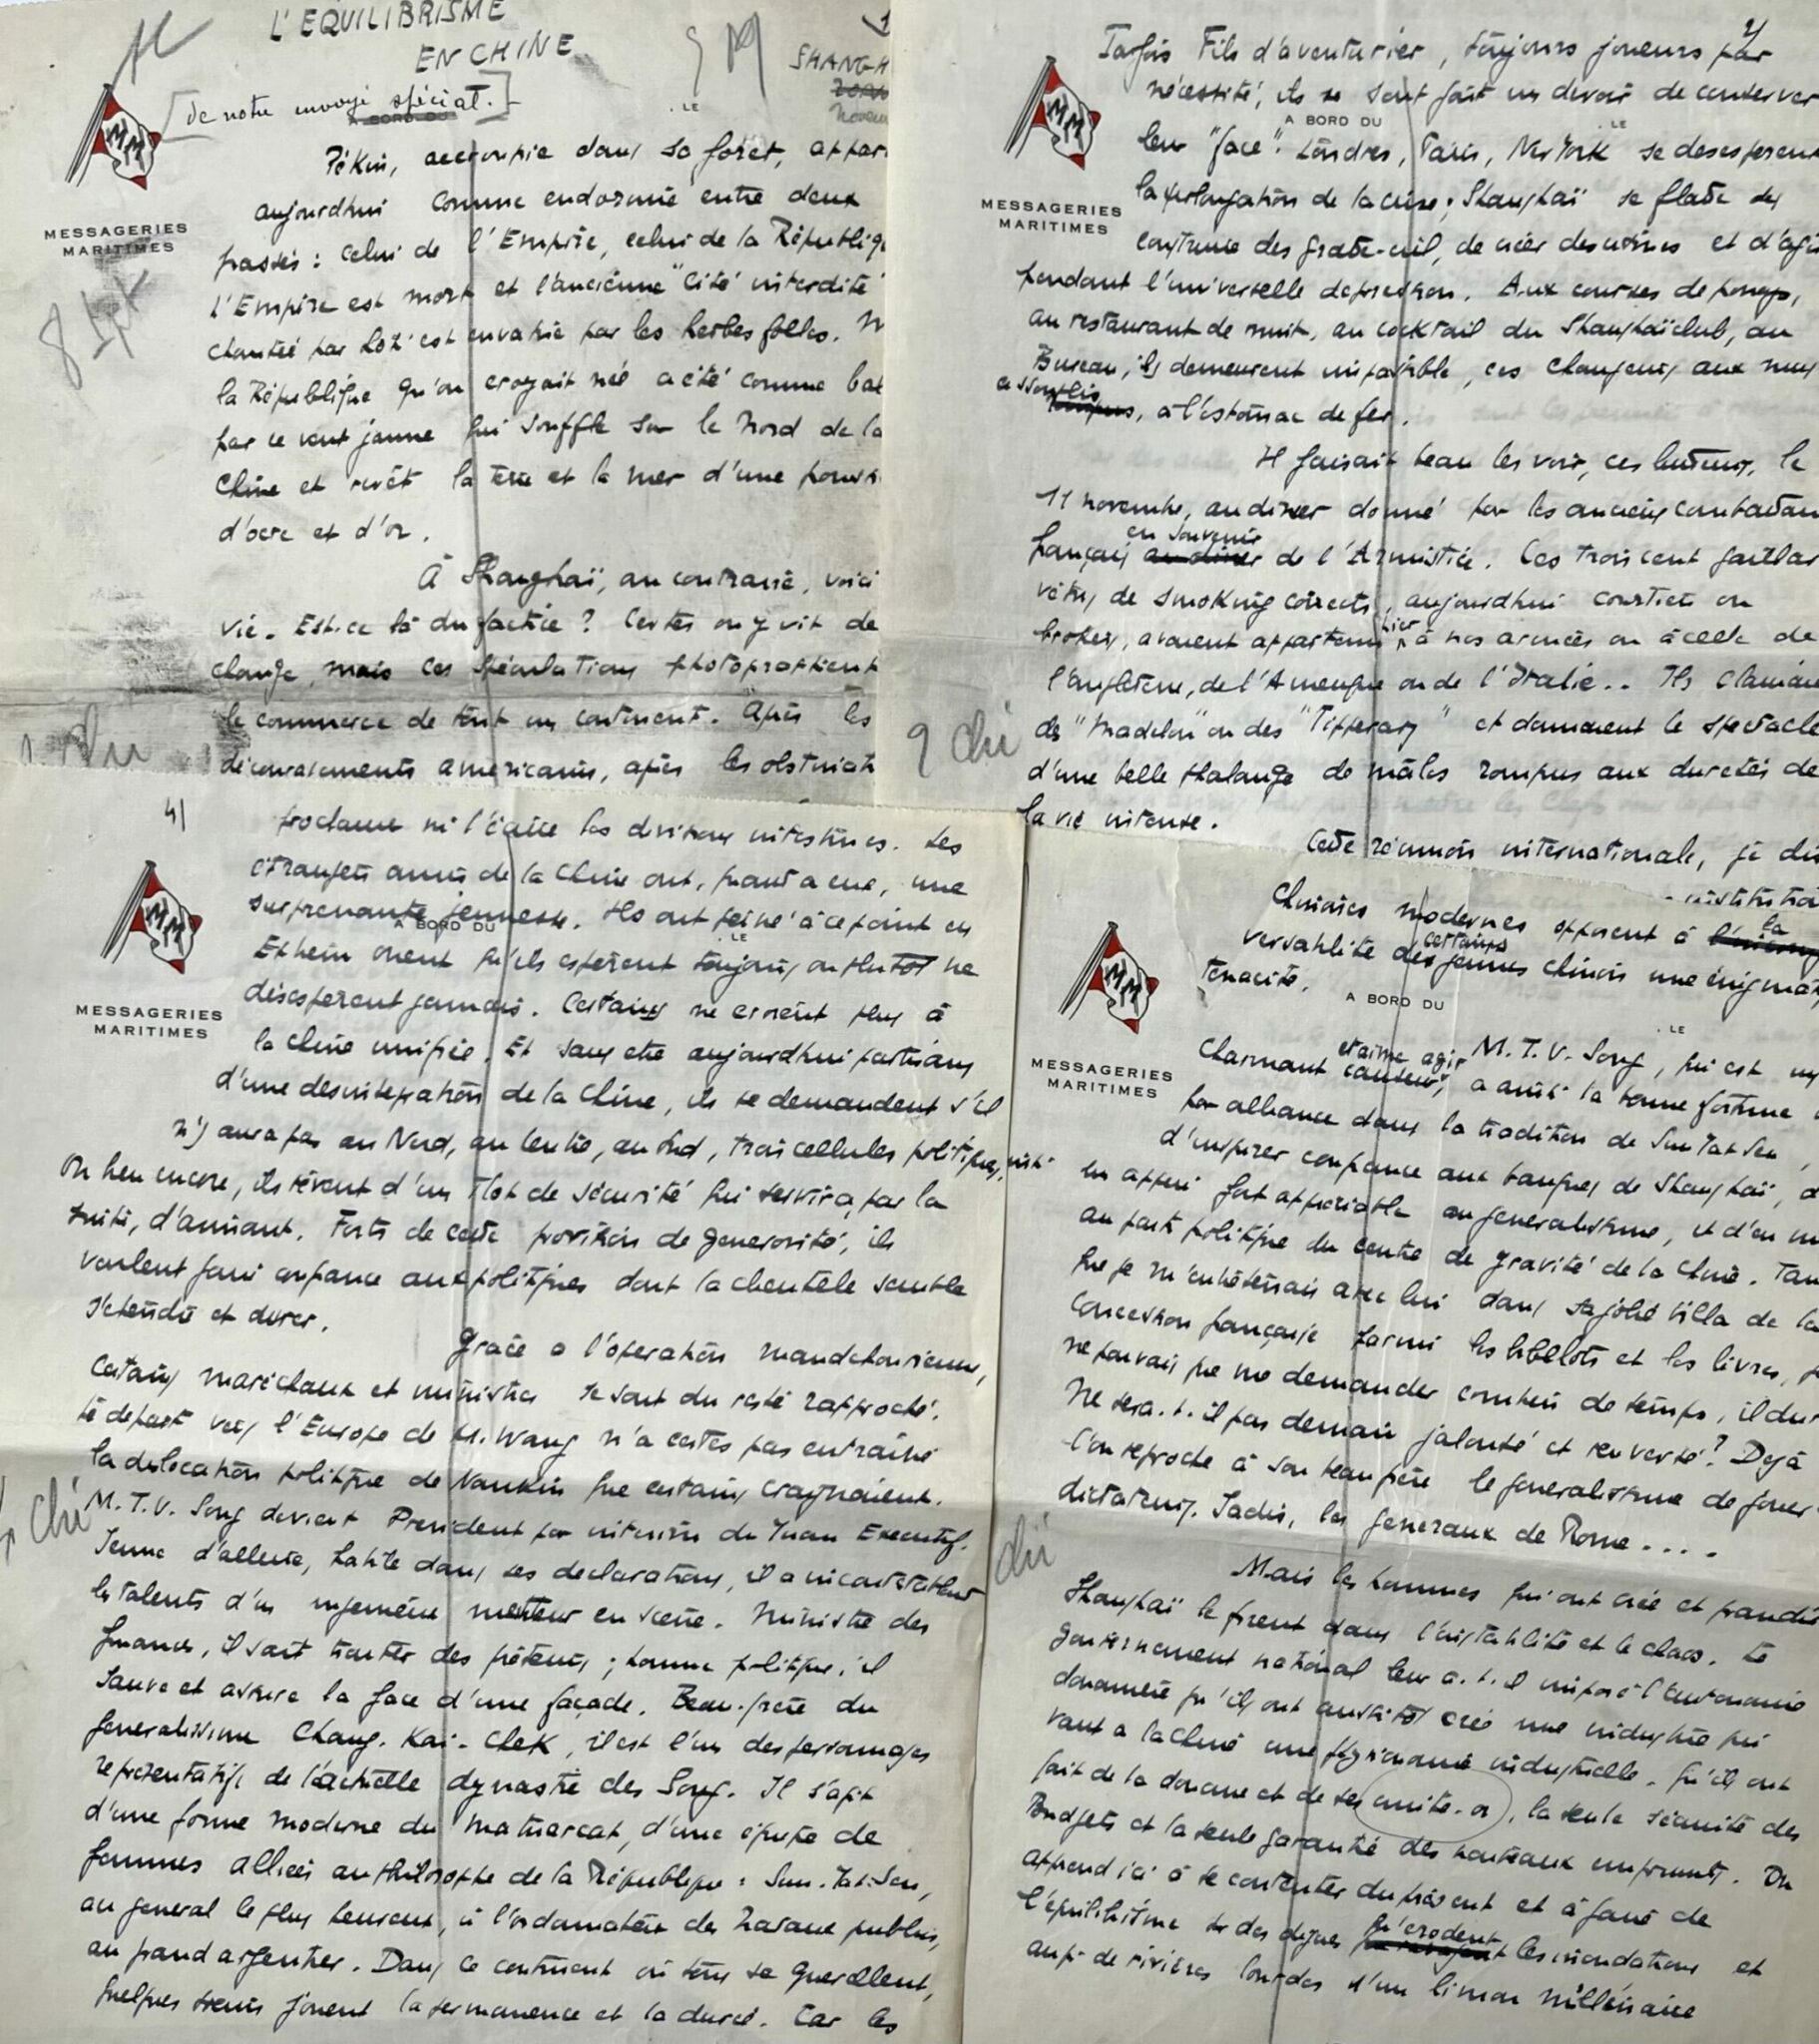 L'EQUILIBRISME
EN CHINE
SHANGH
[de notre envoyé spécial.]
A BORD DU
LE
MESSAGERIES
MARITIMES
Pékin, accroupie dans sa forêt, appar
aujourdhui comme endormie entre deux
passés : celui de l'Empire, celui de la Républiq
l'Empire est mort et l'ancienne "Cité interdite"
chantée par Loti est envahie par les herbes folles.
la République qu'on croyait née a été comme bal
par ce vent jaune qui souffle sur le Nord de la
Chine et revêt la terre et la mer d'une pouss
d'ocre et d'or.
A Shanghaï, au contraire, voici
vie. Est-ce là du factice ? Certes on y vit de
change, mais ces spéculations photographient
le commerce de tout un continent. Après les
américains, après les obstruct
2/
Parfois Fils d'aventurier, toujours joueurs par
nécessité, ils se sont fait un devoir de conserver
A BORD DU
LE
leur "face". Londres, Paris, New York se desesperent
MESSAGERIES
MARITIMES
la prolongation de la crise ; Shanghaï se flatte de
construire des gratte-ciel, de créer des usines et d'agir
pendant l'universelle depression. Aux courses de poneys,
au restaurant de nuit, au cocktail du Shanghaïclub, au
Bureau, ils demeurent impassible, ces changeurs aux nerfs
assouplis, à l'estomac de fer.
Il faisait beau les voir, ces lutteurs, le
11 novembre, au diner donné par les anciens combattan
français en souvenir de l'Armistice. Ces trois cent gaillar
vêtus de smoking corrects, aujourdhui courtiers ou
brokers, avaient appartenu hier à nos armées ou à celle de
l'angleterre, de l'Amerique ou de l'Italie.. Ils clamaie
des "Madelon" ou des "Tipperary" et donnaient le spectacle
d'une belle phalange de mâles rompus aux duretés de
la vie intense.
Cette réunion internationale, je di
4/
proclamer ni l'écrire les divisions intestines. Les
étrangers amis de la Chine ont, quant a eux, une
surprenante jeunesse. Ils ont peiné à ce point en
A BORD DU
LE
Extrem orient qu'ils espèrent toujours ou plutot ne
désespèrent jamais. Certains ne croient plus à
MESSAGERIES
MARITIMES
la Chine unifiée. Et sans etre aujourdhui partisans
d'une desintegration de la Chine, ils se demandent s'il
n'y aura pas au Nord, au Centre, au Sud, trois cellules politiques,
ou bien encore, ils rêvent d'un îlot de sécurité qui servira, par la
suite, d'aimant. Forts de cette provision de generosité, ils
veulent faire confiance aux politiques dont la clientèle semble
s'etendre et durer.
Grâce a l'operation mandchourienne,
Certains maréchaux et ministres se sont du reste rapproché.
Le depart vers l'Europe de M. Wang n'a certes pas entraîné
la dislocation politique de Nankin que certains craignaient.
M. T. V. Song devient President par interim du Yuan Executif.
Jeune d'allure, habile dans ses declarations, il a incontestablemt
les talents d'un ingenieux metteur en scène. Ministre des
finances, il sait trouver des prêteurs ; homme politique, il
sauve et assure la face d'une façade. Beau-frere du
generalissime Chang-Kai-Chek, il est l'un des personnages
représentatifs de l'actuelle dynastie des Song. Il s'agit
d'une forme moderne du matriarcat, d'une équipe de
femmes alliées au philosophe de la République : Sun-Yat-Sen,
au general le plus heureux, à l'ordonnateur des travaux publics,
au grand argentier. Dans ce continent où tous se querellent,
quelques soeurs jouent la permanence et la durée. Car les
institution
Chinoises modernes opposent à la
versatilité de certains jeunes chinois une énigmat
tenacité.
A BORD DU
LE
MESSAGERIES
MARITIMES
Charmant causeur, et aime agir M. T. V. Song, qui est un
a aussi la bonne fortune
par alliance dans la tradition de Sun Yat Sen,
d'inspirer confiance aux banques de Shanghaï, d
un appui fort appréciable au generalissime, et d'en
au point politique du centre de gravité de la Chine. Tan
que je m'entretenais avec lui dans sa jolie villa de la
Concession française parmi les bibelots et les livres, je
ne pouvais que me demander combien de temps, il dur
Ne sera-t-il pas demain jalousé et renversé ? Dejà
l'on reproche à son beau père le generalissime de jouer
dictateurs. Jadis, les generaux de Rome....
Mais les hommes qui ont créé et grandi
Shanghaï le firent dans l'instabilité et le chaos. Le
gouvernement national leur a-t-il imposé l'autonomie
douanière qu'ils ont aussitot créé une industrie qui
vaut a la Chine une physionomie industrielle. Qu'ils ont
fait de la douane et de ses unité-or, la seule sécurité des
Budgets et la seule garantie des nouveaux emprunts. On
apprend ici à se contenter du présent et à faire de
l'équilibrisme sur des digues qu'erodent les inondations et
de rivières lourdes d'un limon millénaire